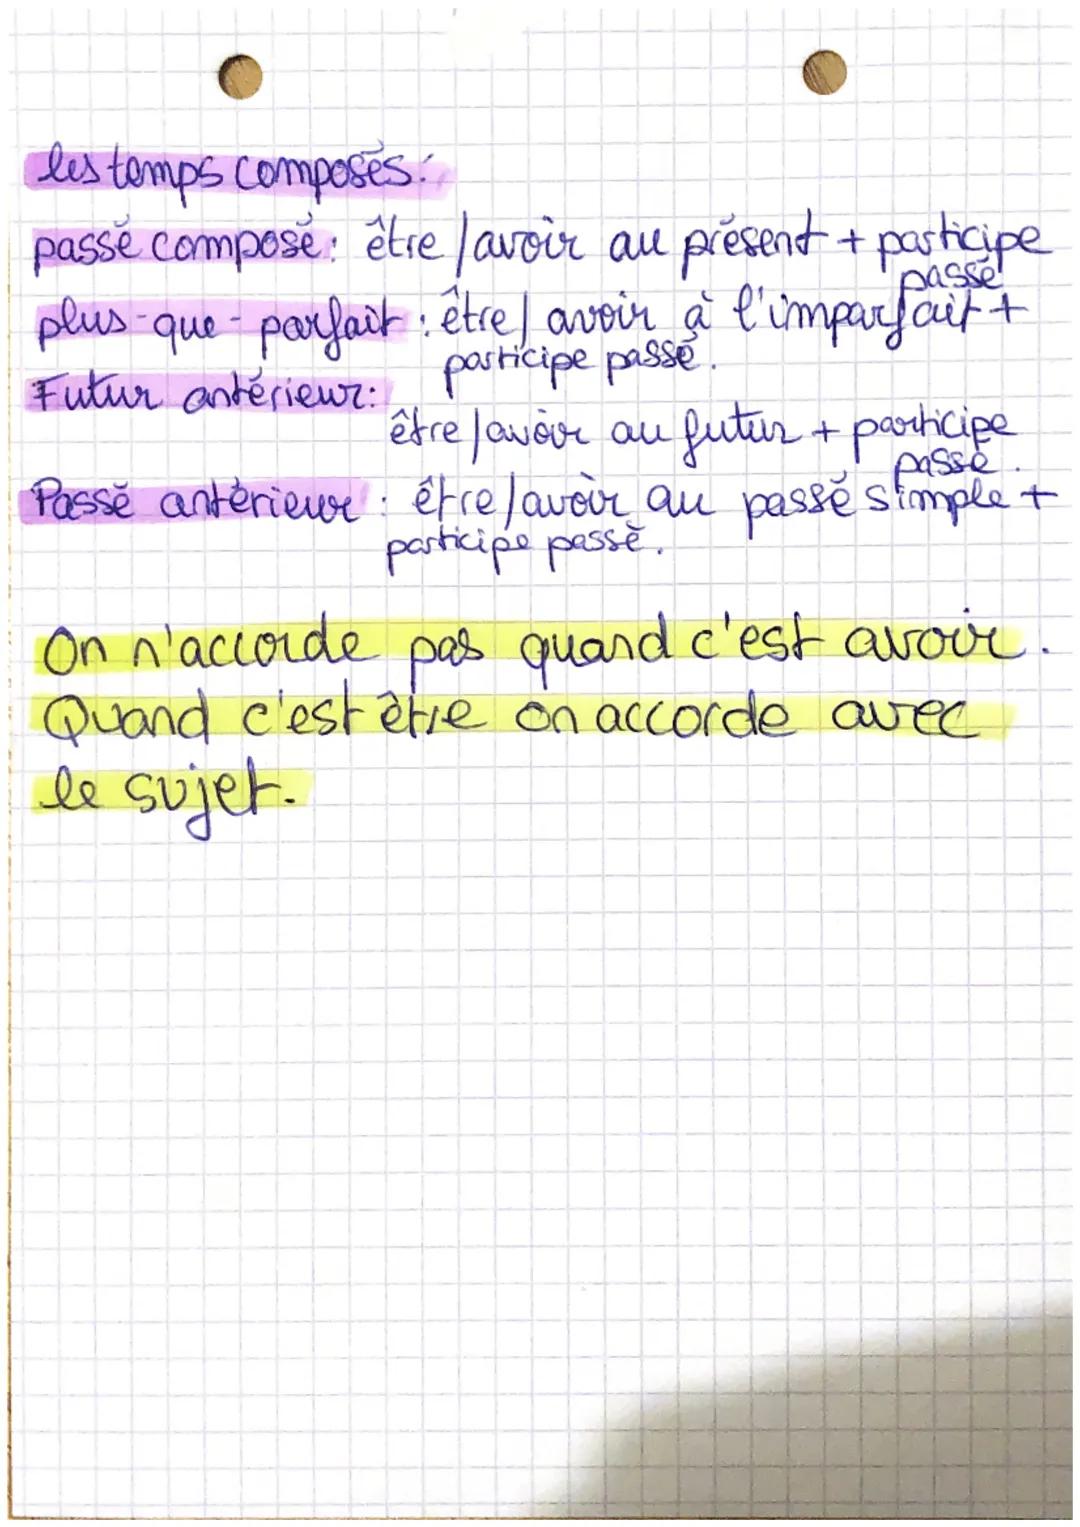 les temps composés:
passé composé: être/avoir au présent + participe
passé
plus-que-parfait: être/avoir à l'imparfait +
participe passé.
Futur antérieur:
être/avoir au futur + participe
passé.
Passé antérieur: être/avoir au passé simple +
participe passé.
On n'accorde pas quand c'est avoir.
Quand c'est être on accorde avec
le sujet.